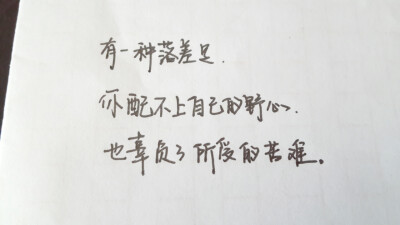 有一种落差是.
你配不上自己的野心.
也辜负了所受的苦难。